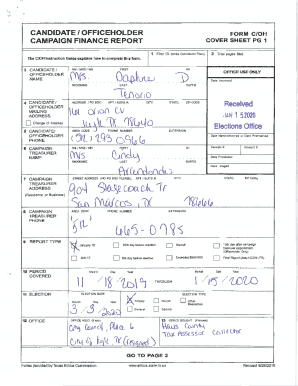 CANDIDATE / OFFICEHOLDER
CAMPAIGN FINANCE REPORT
FORM C/OH
COVER SHEET PG 1
The C/OH Instruction Guide explains how to complete this form.
1 Filer ID (Ethics Commission Filers)
2 Total pages filed:
3 CANDIDATE / OFFICEHOLDER NAME
MS / MRS / MR FIRST MI
Mrs. Daphne D
NICKNAME LAST SUFFIX
Tenorio
OFFICE USE ONLY
Date Received
Received
JAN 15 2020
Elections Office
4 CANDIDATE / OFFICEHOLDER MAILING ADDRESS
Change of Address
ADDRESS / PO BOX; APT / SUITE #; CITY; STATE; ZIP CODE
Orion CV
Kyle TX 78640
5 CANDIDATE / OFFICEHOLDER PHONE
AREA CODE PHONE NUMBER EXTENSION
(512) 293 0566
Date Hand-delivered or Date Postmarked
6 CAMPAIGN TREASURER NAME
MS / MRS / MR FIRST MI
Mrs. Cindy
NICKNAME LAST SUFFIX
Receipt # Amount $
Date Processed
Date Imaged
7 CAMPAIGN TREASURER ADDRESS
(Residence or Business)
STREET ADDRESS (NO PO BOX PLEASE); APT / SUITE #; CITY; STATE; ZIP CODE
904 Stagecoach Tr
San Marcos, TX 78666
8 CAMPAIGN TREASURER PHONE
AREA CODE PHONE NUMBER EXTENSION
512 665-0785
9 REPORT TYPE
January 15
30th day before election
Runoff
15th day after campaign treasurer appointment (Officeholder Only)
July 15
8th day before election
Exceeded $500 limit
Final Report (Attach C/OH - FR)
10 PERIOD COVERED
Month Day Year
11 / 18 / 2019
THROUGH
Month Day Year
1 / 15 / 2020
11 ELECTION
ELECTION DATE
Month Day Year
3 / 3 / 2020
ELECTION TYPE
Primary
Runoff
Other Description
General
Special
12 OFFICE
OFFICE HELD (if any)
City Council, Place 6
City of Kyle, TX (resigned)
13 OFFICE SOUGHT (if known)
Hays County
Tax Assessor Collector
GO TO PAGE 2
Forms provided by Texas Ethics Commission
www.ethics.state.tx.us